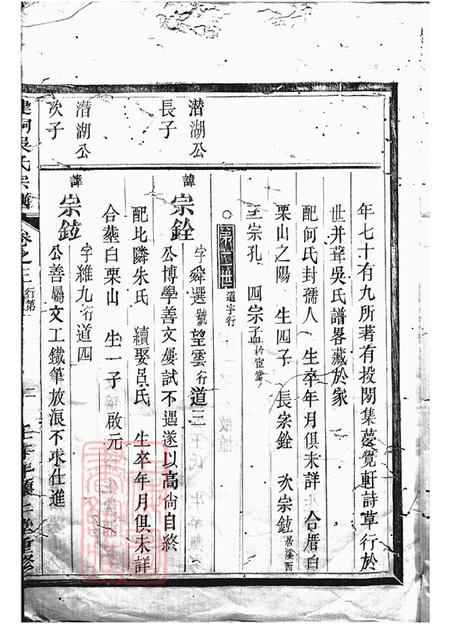 年七十有九所著有投閑集夢覺軒詩草行於
世并葺吳氏譜畧藏於家
配何氏封孺人 生卒年月俱未詳 合厝白
栗山之陽 生四子 長宗銓 次宗鉝
三宗孔 四宗子
道字行
潛湖公
長子
諱宗銓
字舜選號望雲行道三
公博學善文屢試不遇遂以高尚自終
配比隣朱氏 續娶呂氏 生卒年月俱未詳
合塟白栗山 生一子 啟元
潛湖公
次子
諱宗鉝
字維九行道四
公善屬文工鐵筆放浪不求仕進
吳氏宗譜 卷之三 行第
重修